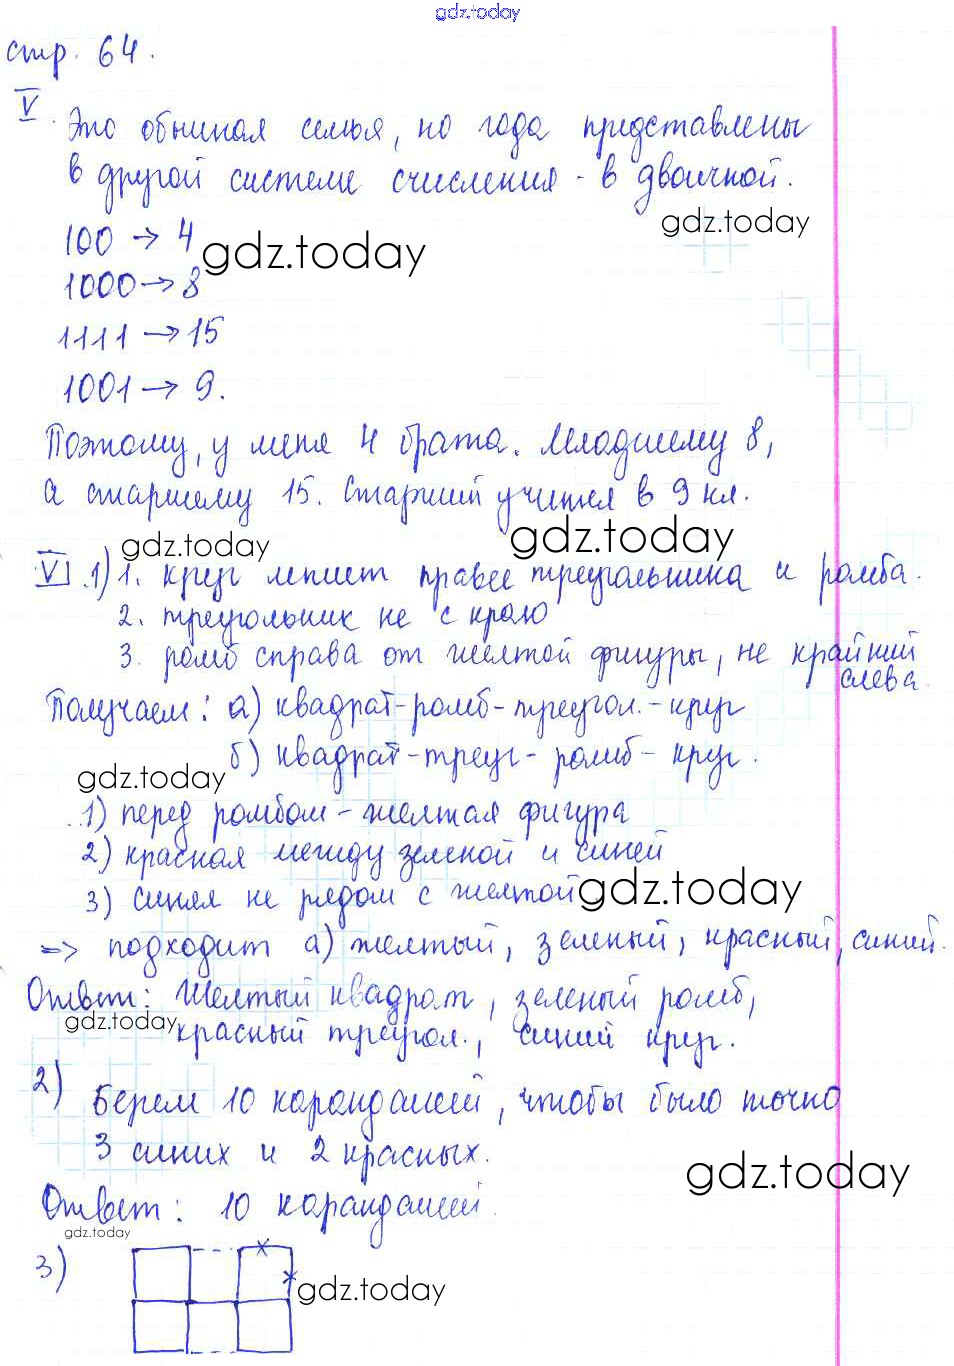 gdz.today
стр. 64.
V. Это обычная семья, но года представлены
в другой системе счисления - в двоичной.
gdz.today
100 → 4
gdz.today
1000 → 8
1111 → 15
1001 → 9.
Поэтому, у меня 4 брата. Младшему 8,
а старшему 15. Старший учится в 9 кл.
gdz.today
gdz.today
VI. 1) 1. круг лежит правее треугольника и ромба.
2. треугольник не с краю
3. ромб справа от желтой фигуры, не крайний
слева.
Получаем: а) квадрат-ромб-треугол.-круг
б) квадрат-треуг-ромб-круг.
gdz.today
1) перед ромбом - желтая фигура
2) красная между зеленой и синей
3) синяя не рядом с желтой
gdz.today
=> подходит а) желтый, зеленый, красный, синий.
Ответ: Желтый квадрат, зеленый ромб,
gdz.today
красный треугол., синий круг.
2) Берем 10 карандашей, чтобы было точно
3 синих и 2 красных.
gdz.today
Ответ: 10 карандашей.
gdz.today
3)
gdz.today